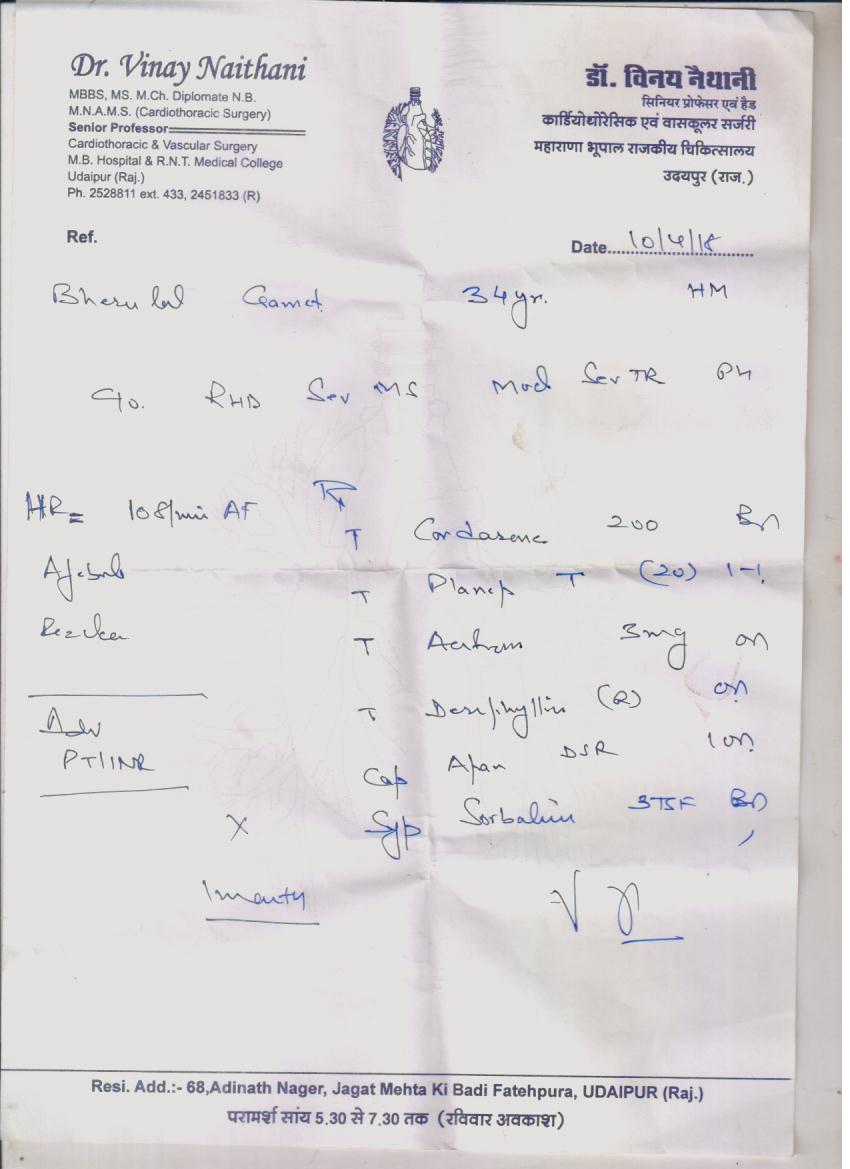 Dr. Vinay Naithani
MBBS, MS. M.Ch. Diplomate N.B.
M.N.A.M.S. (Cardiothoracic Surgery)
Senior Professor
Cardiothoracic & Vascular Surgery
M.B. Hospital & R.N.T. Medical College
Udaipur (Raj.)
Ph. 2528811 ext. 433, 2451833 (R)
डॉ. विनय नैथानी
सिनियर प्रोफेसर एवं हैड
कार्डियोथोरेसिक एवं वासकूलर सर्जरी
महाराणा भूपाल राजकीय चिकित्सालय
उदयपुर (राज.)
Ref.
Date 10/4/18
Bherulal Gamet 34yr. HM
RHD Sev MS Mod Sev TR PH
HR = 108/min AF
T 200
T T (20) 1-1
T 3mg on
T (R) on
Adv
PT/INR
Cap DSR 1 on
X Syp 3TSF
1 month
Resi. Add.:- 68,Adinath Nager, Jagat Mehta Ki Badi Fatehpura, UDAIPUR (Raj.)
परामर्श सांय 5.30 से 7.30 तक (रविवार अवकाश)